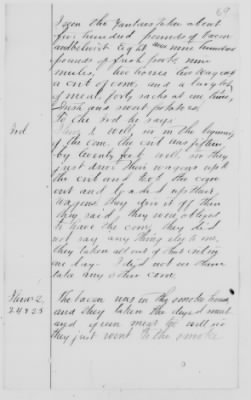 69
I seen the Yankees take about
five hundred pounds of bacon
and about Eight or nine hundred
pounds of fresh pork, nine
mules, two horses two wagons
a crib of corn, and a large lot
of meal, forty sack at one time,
Irish and sweet potatoes.
3rd To the 3rd he says
I know it well, in the beginning
of the corn. The crib was fifteen
by twenty feet well, so they
just drove their wagons up to
the crib and took the corn
out and loaded up their
wagons they drove it off then
they said, they were obliged
to have the corn, they did
not say any thing else to me,
they taken all out of that crib in
one day. I did not see them
take any other corn.
Items 2, The bacon was in the smoke house,
24 & 25 and they taken the dryed meat
and green meat too well so
they just went to the smoke